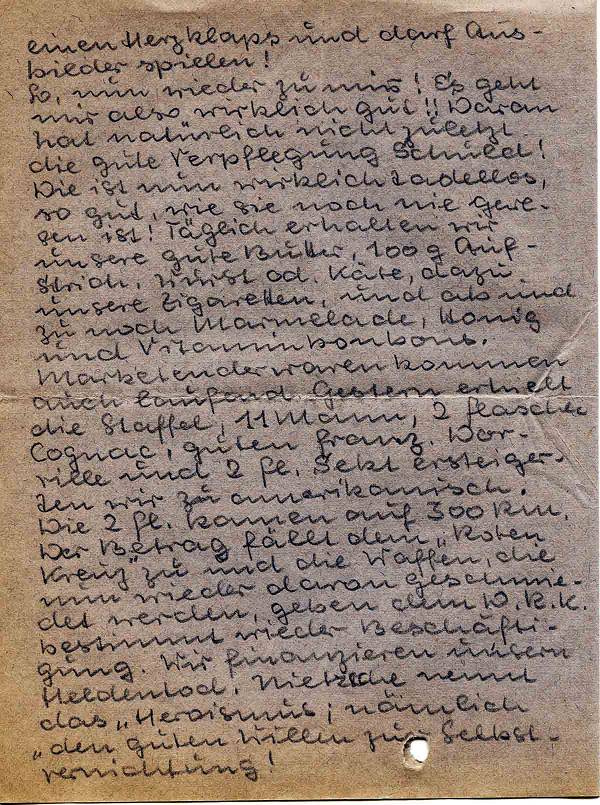 einen Herzklaps und darf Aus-
bilder spielen!
So, nun wieder zu mir! Es geht
mir also wirklich gut!! Daran
hat natürlich nicht zuletzt
die gute Verpflegung Schuld!
Die ist nun wirklich tadellos,
so gut, wie sie noch nie gewe-
sen ist! Täglich erhalten wir
unsere gute Butter, 100 g Auf-
strich, Wurst od. Käse, dazu
unsere Zigaretten, und ab und
zu noch Marmelade, Honig
und Vitaminbonbons.
Marketenderwaren kommen
auch laufend. Gestern erhielt
die Staffel, 11 Mann, 2 Flaschen
Cognac, guten franz.
und 2 Fl. Sekt ersteiger-
ten wir zu amerikanisch.
Die 2 Fl. kamen auf 300 RM.
Der Betrag fällt dem „Roten
Kreuz" zu und die Waffen, die
nun wieder davon geschmie-
det werden, geben dem D.R.K.
bestimmt wieder Beschäfti-
gung. Wir finanzieren unsern
Heldentod. Nietzsche nennt
das „Heroismus", nämlich
„den guten Willen zur Selbst-
vernichtung!